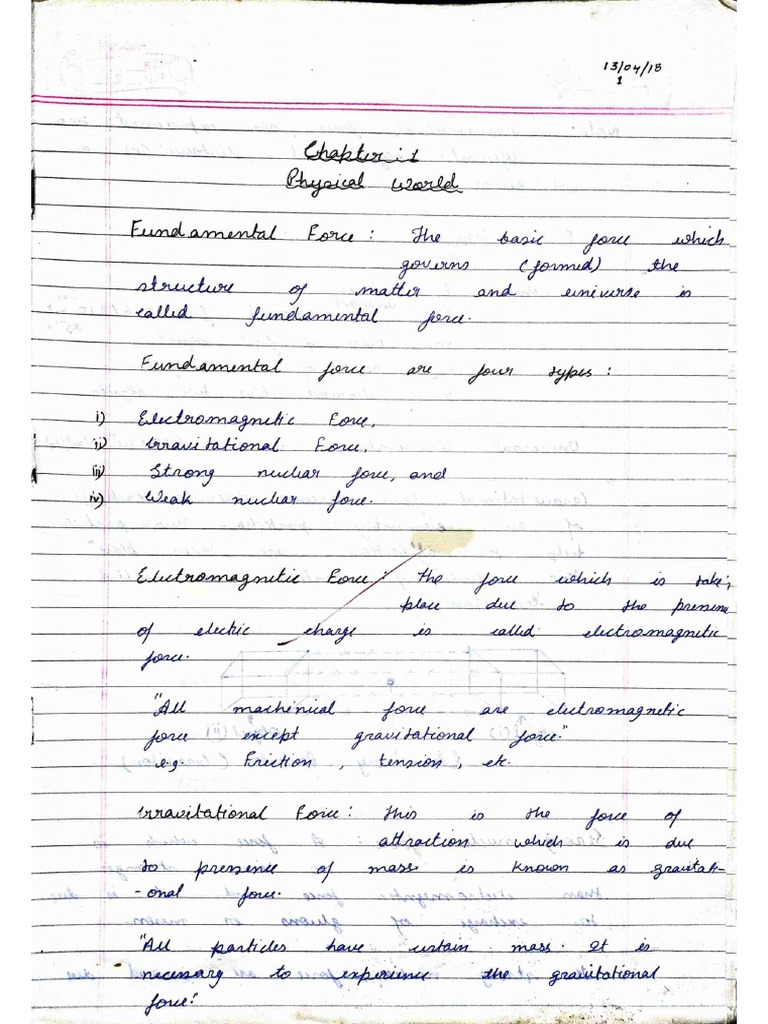 13/04/18
1
Chapter:1
Physical World
Fundamental Force: The basic force which
governs (formed) the
structure of matter and universe is
called fundamental force.
Fundamental force are four types:
i) Electromagnetic Force,
ii) Gravitational Force,
iii) Strong nuclear force, and
iv) Weak nuclear force.
Electromagnetic Force: The force which is take,
place due to the presense
of electric charge is called electromagnetic
force.
"All machinical force are electromagnetic
force except gravitational force"
e.g. Friction, tension, etc.
Gravitational Force: This is the force of
attraction which is due
to pressense of mass is known as gravitati-
-onal force.
"All particles have certain mass. It is
necessary to experience the gravitational
force".